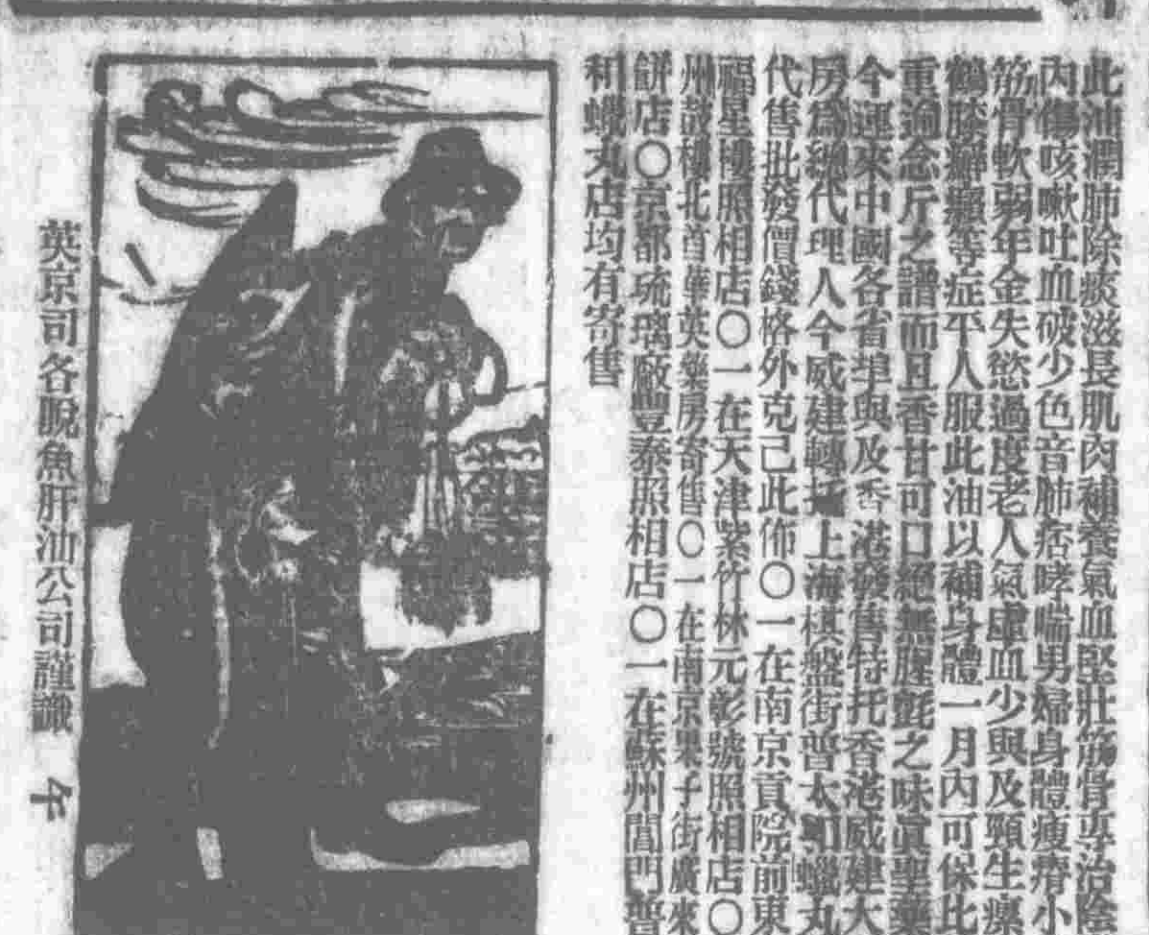 此油潤肺除痰滋長肌肉補養氣血堅壯筋骨專治陰
內傷咳嗽吐血破少色音肺痞哮喘男婦身體瘦瘠小
筋骨軟弱年金失慾過度老人氣虛血少與及頸生瘰
鶴膝癬癩等症平人服此油以補身體一月內可保比
重逾念斤之譜而且香甘可口絕無腥羶之味眞聖藥
今運來中國各省埠與及香港發售特托香港威建大
房爲總代理人今威建轉托上海棋盤街普太和蠟丸
代售批發價錢格外克己此佈〇一在南京貢院前東
福星樓照相店〇一在天津紫竹林元彰號照相店〇
州鼓樓北首華英藥房寄售〇一在南京果子街廣來
餠店〇京都琉璃廠豐泰照相店〇一在蘇州閶門普
和蠟丸店均有寄售
英京司各脫魚肝油公司謹識
午